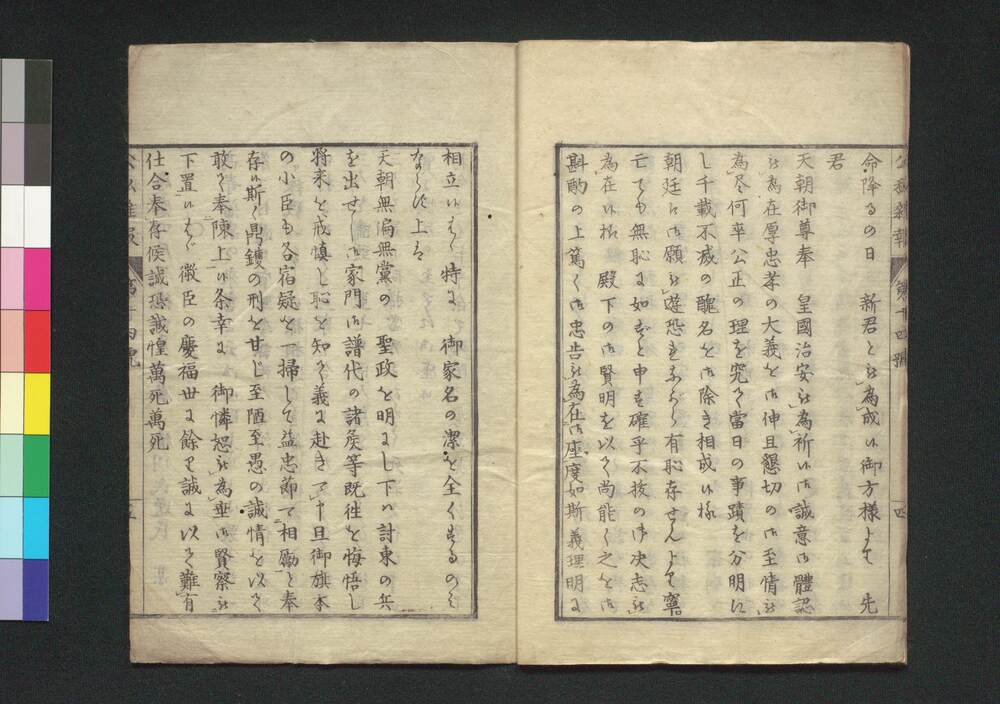 公私雑報 第十四號 四
命降るの日 新君と被為成候御方様よて 先
君
天朝御尊奉 皇國治安被為祈候御誠意御體認
被為在厚忠孝の大義を御伸且懇切の御至情被
為尽何卒公正の理を究て當日の事蹟を分明に
し千載不滅の醜名を御除き相成候様
朝廷江御願被遊恐なから有恥存せんよて寧
亡ても無恥に如すと申も確乎不抜の御决志被
為在候様 殿下の御賢明を以て尚能く之を御
斟酌の上篤く御忠告被為在御座度如斯義理明に
相立候はゝ特に御家名の潔を全くするのミ
ならす上は
天朝無偏無黨の 聖政を明にし下ハ討東の兵
を出せし御家門御譜代の諸矦等既徃を悔悟し
将来を戒慎し恥を知て義に赴き 旦御旗本
の小臣も各宿疑を一掃して益忠節て相勵を奉
存候斯く鼎鑊の刑を甘し至陋至愚の誠情を以て
敢て奉陳上候条幸に 御憐恕被為垂御賢察被
下置候はゝ 微臣の慶福世に餘り誠に以て難有
仕合奉存候誠恐誠惶萬死萬死
公私雑報 第十四號 五